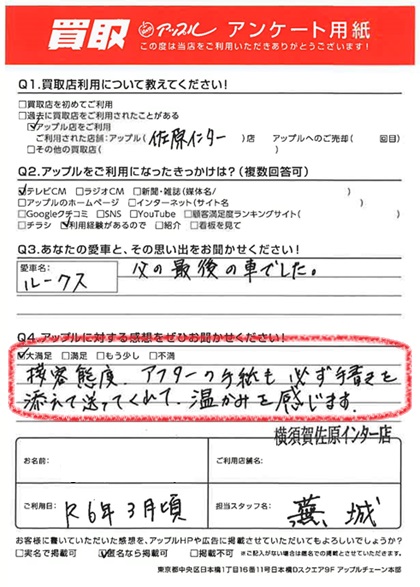 買取 アップル アンケート用紙
この度は当店をご利用いただきありがとうございます!
Q1.買取店利用について教えてください!
□買取店を初めてご利用
□過去に買取店をご利用されたことがある
☑アップル店をご利用
ご利用された店舗:アップル( 佐原インター )店 アップルへのご売却( 回目)
□その他の買取店( )
Q2.アップルをご利用になったきっかけは?(複数回答可)
☑テレビCM □ラジオCM □新聞・雑誌(媒体名/ )
□アップルのホームページ □インターネット(サイト名 )
□Googleクチコミ □SNS □YouTube □顧客満足度ランキングサイト( )
□チラシ ☑利用経験があるので □紹介 □看板を見て
Q3.あなたの愛車と、その思い出をお聞かせください!
愛車名:
ルークス
父の最後の車でした。
Q4.アップルに対する感想をぜひお聞かせください!
☑大満足 □満足 □もう少し □不満
接客態度、アフターの手紙も必ず手書きを
添えて送ってくれて、温かみを感じます。
横須賀佐原インター店
お名前:
ご利用店舗名:
ご利用日: R6年3月頃
担当スタッフ名: 蕪城
お客様に書いていただいた感想を、アップルHPや広告に掲載させていただいてもよろしいでしょうか?
□実名で掲載可 ☑匿名なら掲載可 □掲載不可 ※ご記入がない場合は匿名での掲載とさせていただきます。
東京都中央区日本橋1丁目16番11号日本橋Dスクエア9F アップルチェーン本部